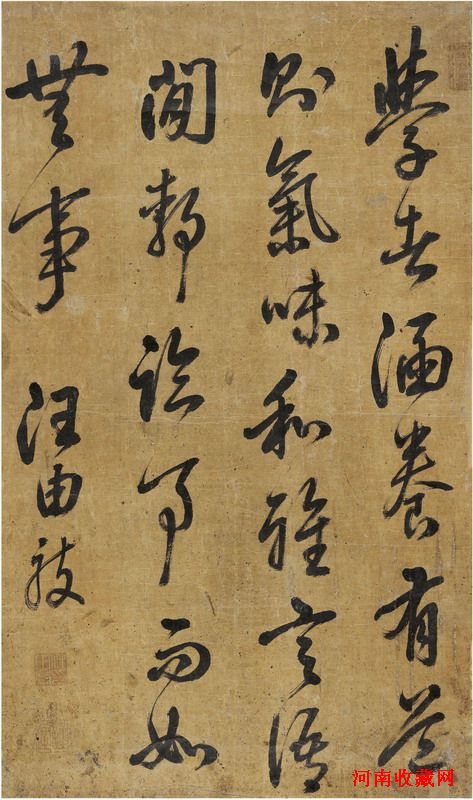 學者涵養有道
則氣味和雅言語
閒靜臨事而如
無事 汪由敦
河南收藏网